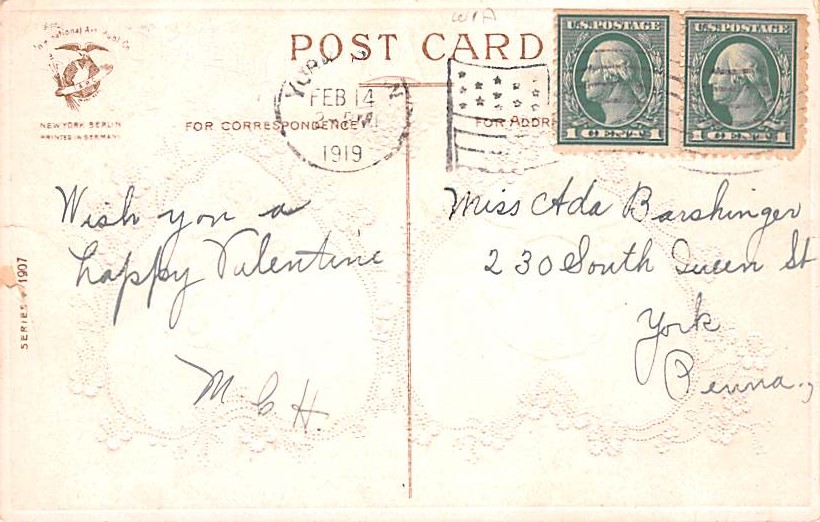 POST CARD
International Art Publ. Co.
NEW YORK BERLIN
PRINTED IN GERMANY
FOR CORRESPONDENCE
FOR ADDRE
YORK
FEB 14
PM
1919
U.S. POSTAGE
1 CENT 1
U.S. POSTAGE
1 CENT 1
SERIES 1907
Wish you a
happy Valentine
M C H.
Miss Ada Barshinger
230 South Queen St
York
Penna.,